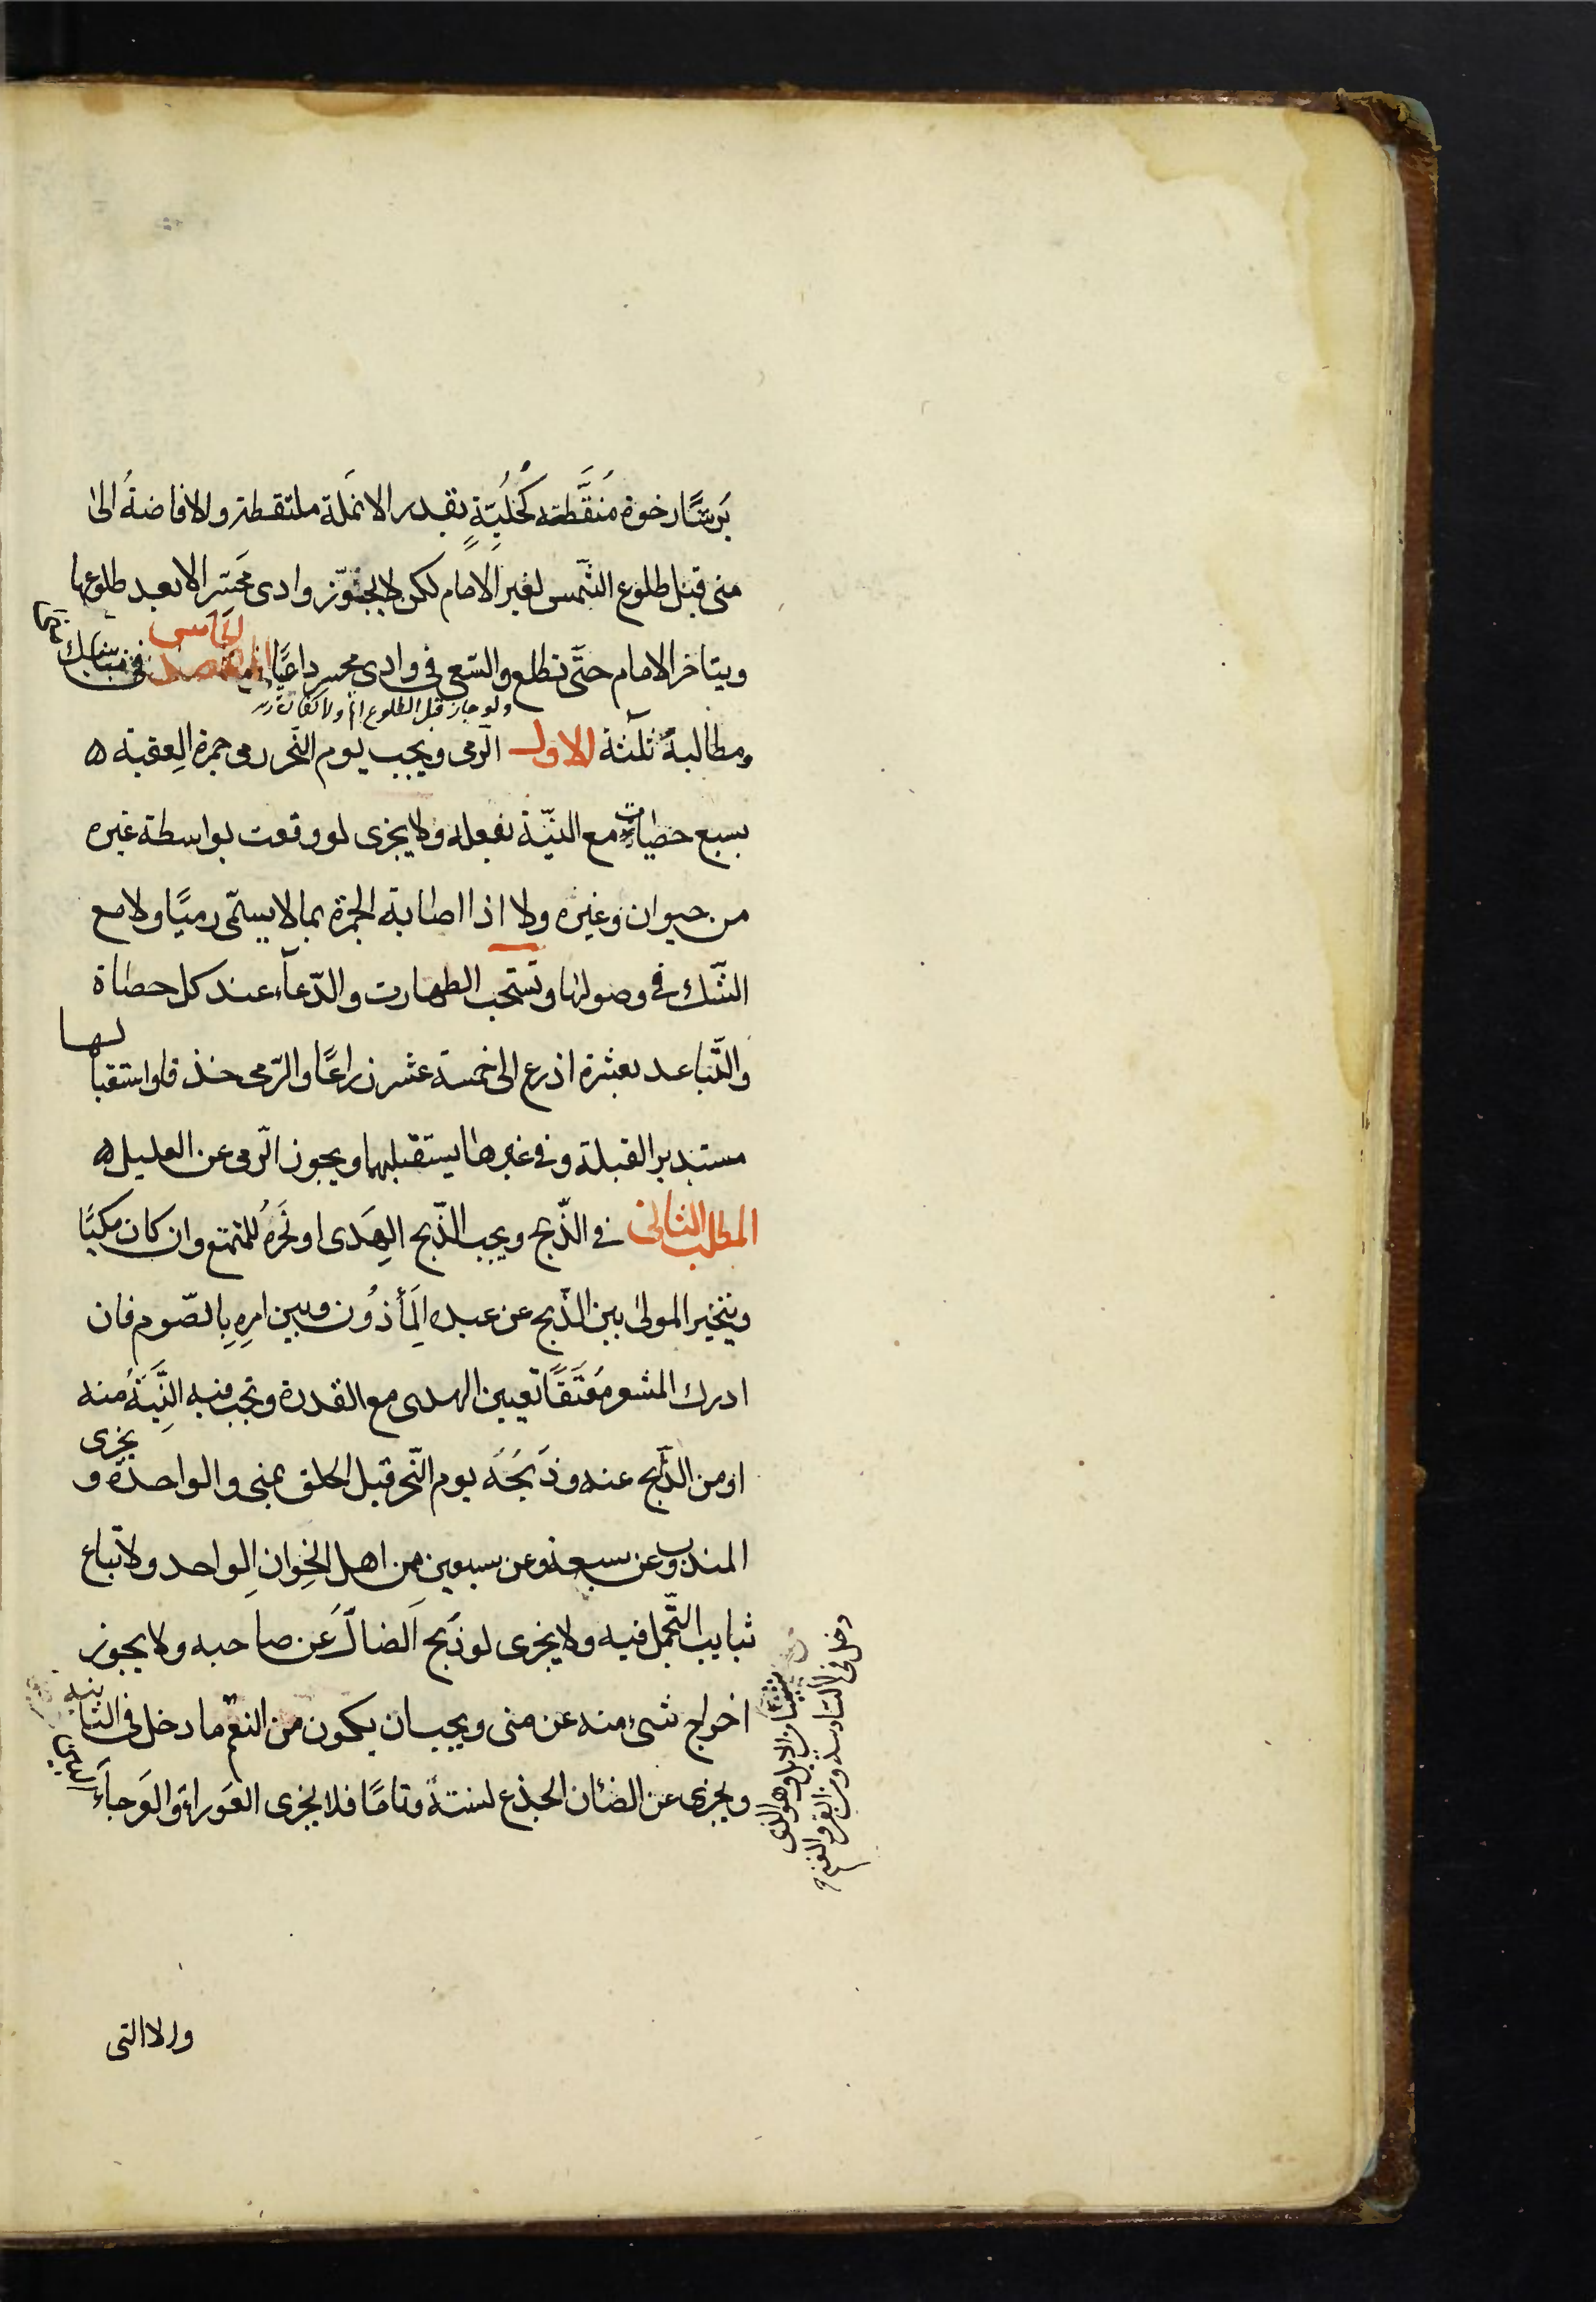 بَرشًا رخوة مُنَقَّطة كُحْلِيَّةٍ بقدر الانمَلة ملتقطة والافاضةُ الىٰ
منى قبل طلوع الشّمس لغير الامام لكن لا يجوّز وادى مَحسّر الا بعد طلوعها
ويتاخر الامام حتّى تطلع والسّعى فى وادى محسر داعيًا المقصد الخامس فى مناسك
ولو جاز قبل الطلوع اثم ولا كفارة
ومطالبهُ ثلثة الاول الرّمى ويجب يوم النّحر رمى جمرة العقبة ه
بسبع حصيات مع النيّة بفعله ولا يجزى لو وقعت بواسطة غيره
من حيوان وغيره ولا اذا اصابة الجمرة بما لا يسمّى رميًا ولا مع
الشّك فى وصولها وتستحب الطهارت والدّعاء عند كل حصاة
والتّباعد بعشرة اذرع الى خمسة عشر ذراعًا والرّمى خذفا واستقبا لها
مستدبر القبلة وفى غيرها يستقبلهما ويجوز الرّمى عن العليل ه
المطلب الثانى فى الذّبح ويجب الذّبح الهَدى او نَحرهُ للمتمتع وان كان مكيًا
ويتخير المولىٰ بين الذّبح عن عبده المَأذُون وبين امرِهِ بِالصّوم فان
ادرك المشعر مُعْتَقًا تعيين الهدى مع القدرة وتجب فيه النِّيَةُ منه
او من الذّابح عنه وذَبحُهَ يوم النّحر قبل الحلق بمنى والواحدة و يجزى
المندوب عن سبعة وعن سبعين مِن اهل الخِوان الواحد ولا تباع
ثيايب التّجمل فيه ولا يجزى لو ذَبح اَلضالَّ عَن صاحبه ولا يجوز
اخراج شىء منه عن منى ويجب ان يكون من النعم ما دخل فى الثا نية
ويجزى عن الضئان الجذع لسنتهٔ وتامًا فلا يجزى العَوراء والعَرجآءَ
من الابل وهو الذى
دخل فى السّادسة ومن البقر والغنم
والا التى